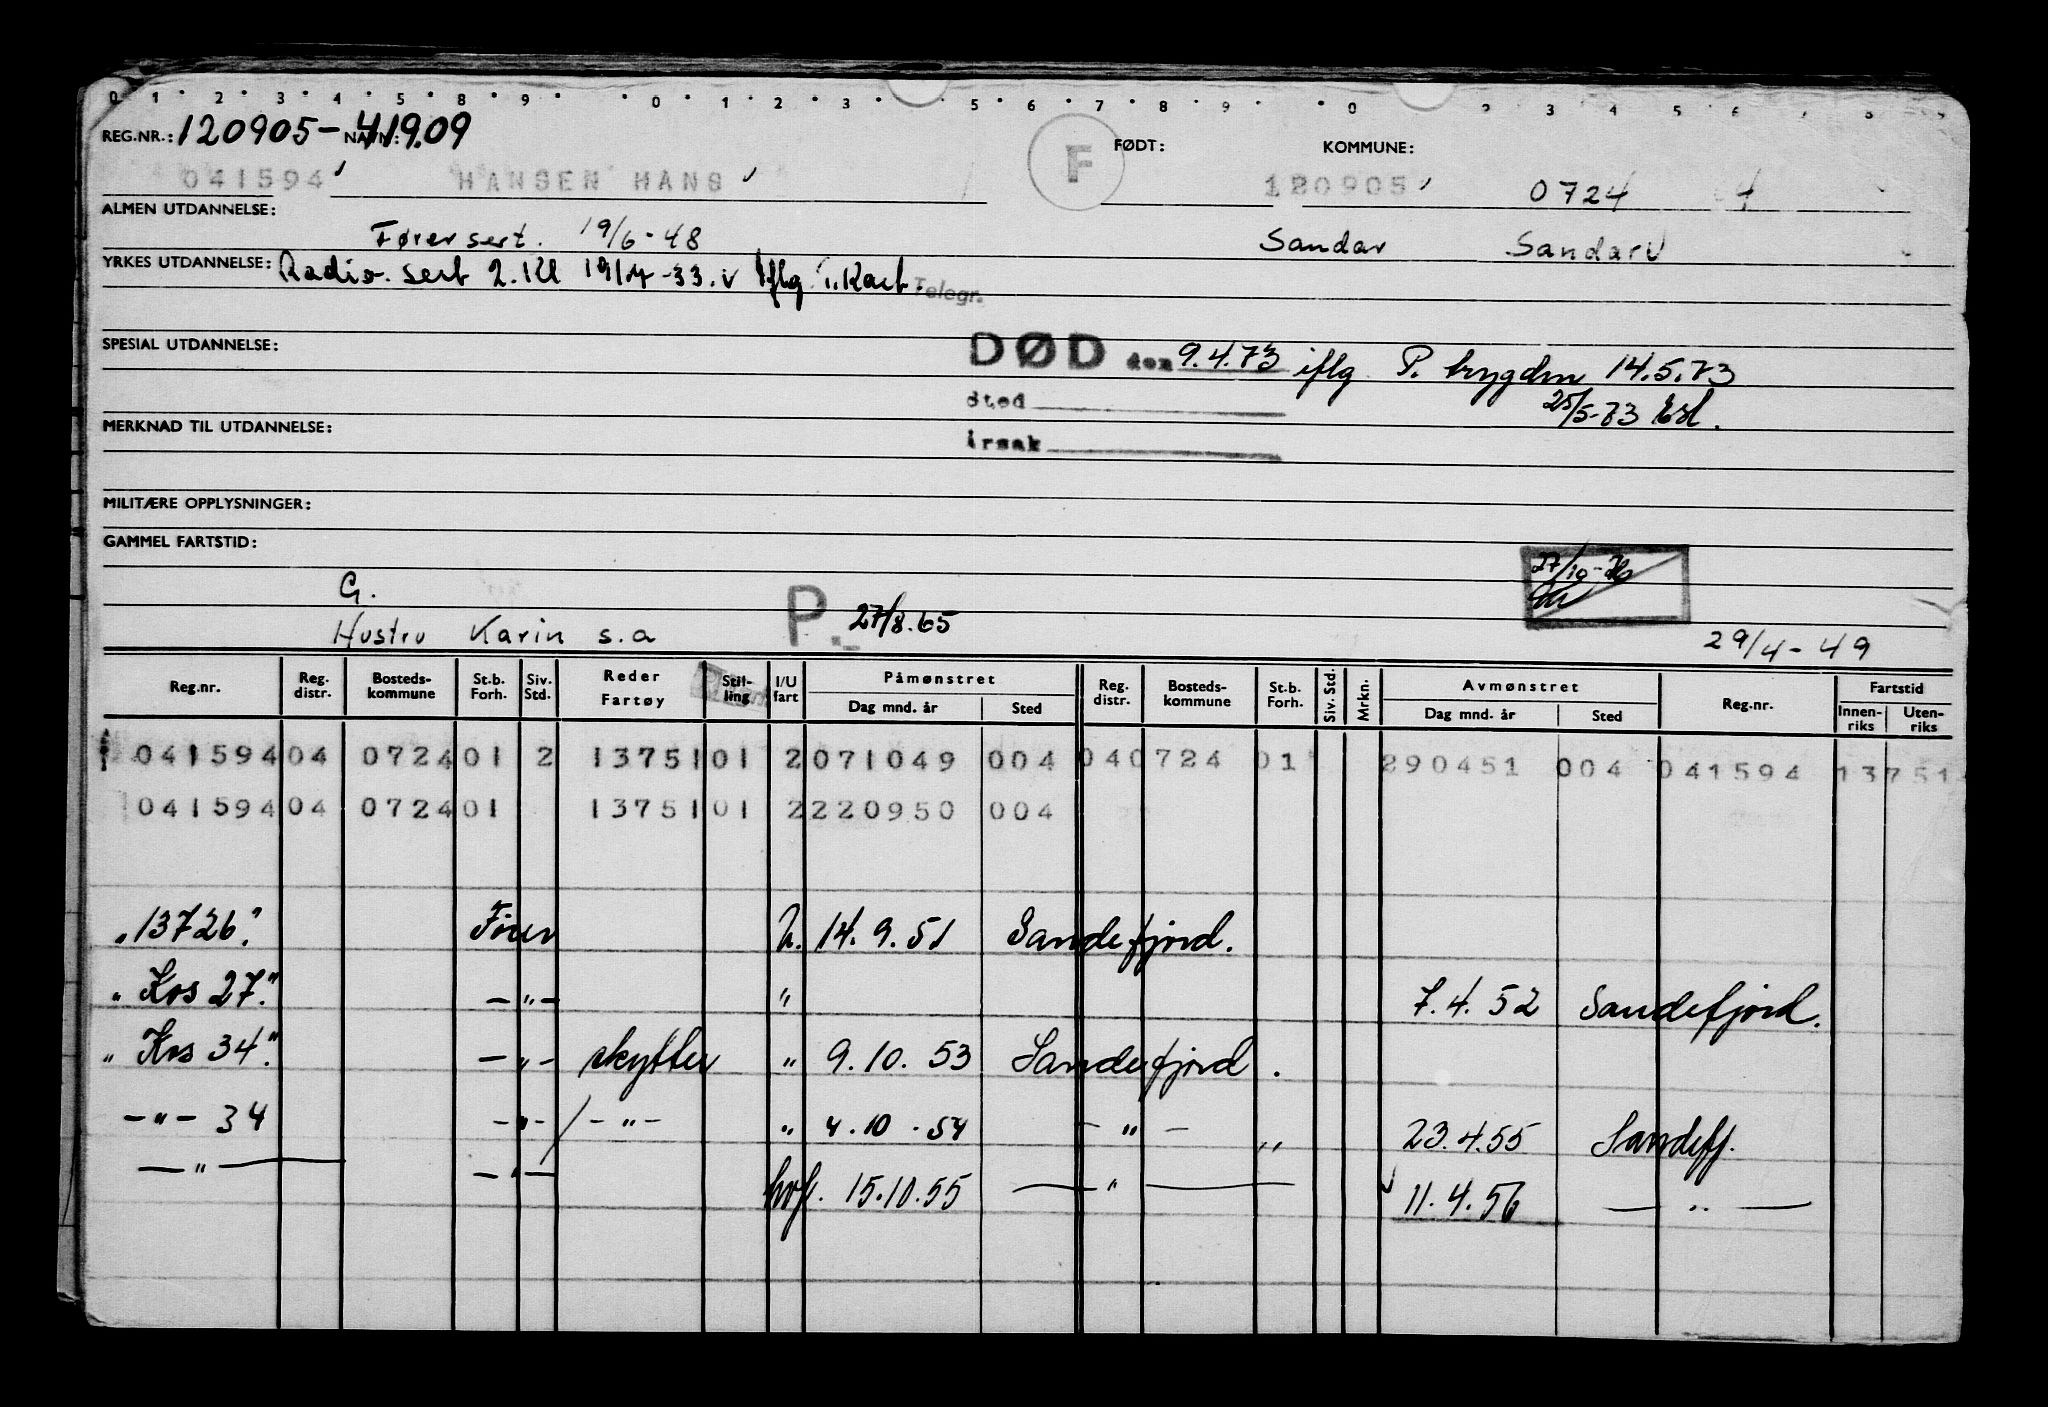 0 1 2 3 4 5 8 9 0 1 2 3 5 6 7 8 9 0 2 3 4 5 6 7 8
REG.NR.: 120905-41909 NAVN: FØDT: KOMMUNE:
041594 HANSEN HANS F 120905 0724
ALMEN UTDANNELSE:
Førersert. 19/6-48 Sandar Sandar
YRKES UTDANNELSE: Radio. sert 2. Kl 19/4-33. v iflg i. Kart. Telegr.
SPESIAL UTDANNELSE: DØD den 9.4.73 iflg P. 14.5.73
sted 25/5-73
MERKNAD TIL UTDANNELSE: årsak
MILITÆRE OPPLYSNINGER:
GAMMEL FARTSTID:
27/10-
G.
Hustru Karin s.a P. 27/8.65 29/4-49
Reg.nr. Reg. distr. Bosteds- kommune St.b. Forh. Siv. Std. Reder Fartøy Stil- ling I/U fart Påmønstret Dag mnd. år Sted Reg. distr. Bosteds- kommune St.b. Forh. Siv. Std. Mrkn. Avmønstret Dag mnd. år Sted Reg.nr. Fartstid Innen- riks Uten- riks
041594 04 0724 01 2 13751 01 2 071049 004 04 0724 01 290451 004 041594 13751
041594 04 0724 01 13751 01 2 220950 004
"13726" Fører U. 14.9.51 Sandefjord.
"Kos 27" -"- " 7.4.52 Sandefjord.
"Kos 34" -"- skytter " 9.10.53 Sandefjord.
-"- 34 -"- / -"- " 4.10.54 -"- " 23.4.55 Sandefj.
-"- -"- hvf. 15.10.55 -"- 11.4.56 -"-